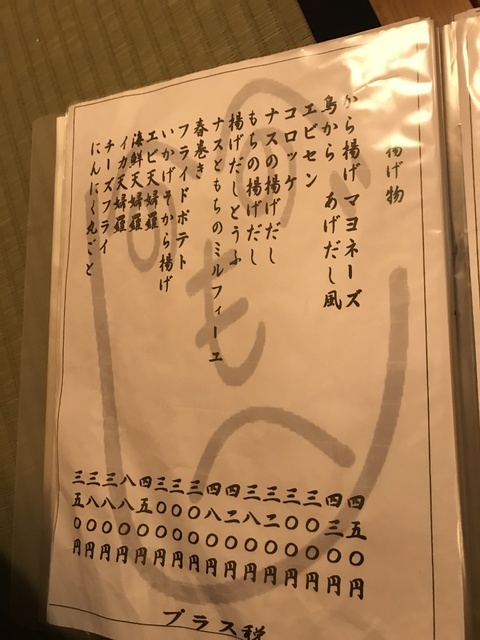 揚げ物
から揚げ マヨネーズ 四五〇円
鳥から あげだし風 四三〇円
エビセン 三〇〇円
コロッケ 三〇〇円
ナスの揚げだし 三二〇円
もちの揚げだし 三八〇円
揚げだしとうふ 四二〇円
ナスともちのミルフィーユ 四八〇円
春巻き 三〇〇円
フライドポテト 三〇〇円
いかげそから揚げ 三〇〇円
エビ天婦羅 四五〇円
海鮮天婦羅 八八〇円
イカ天婦羅 三八〇円
チーズフライ 三八〇円
にんにく丸ごと 三五〇円
プラス税